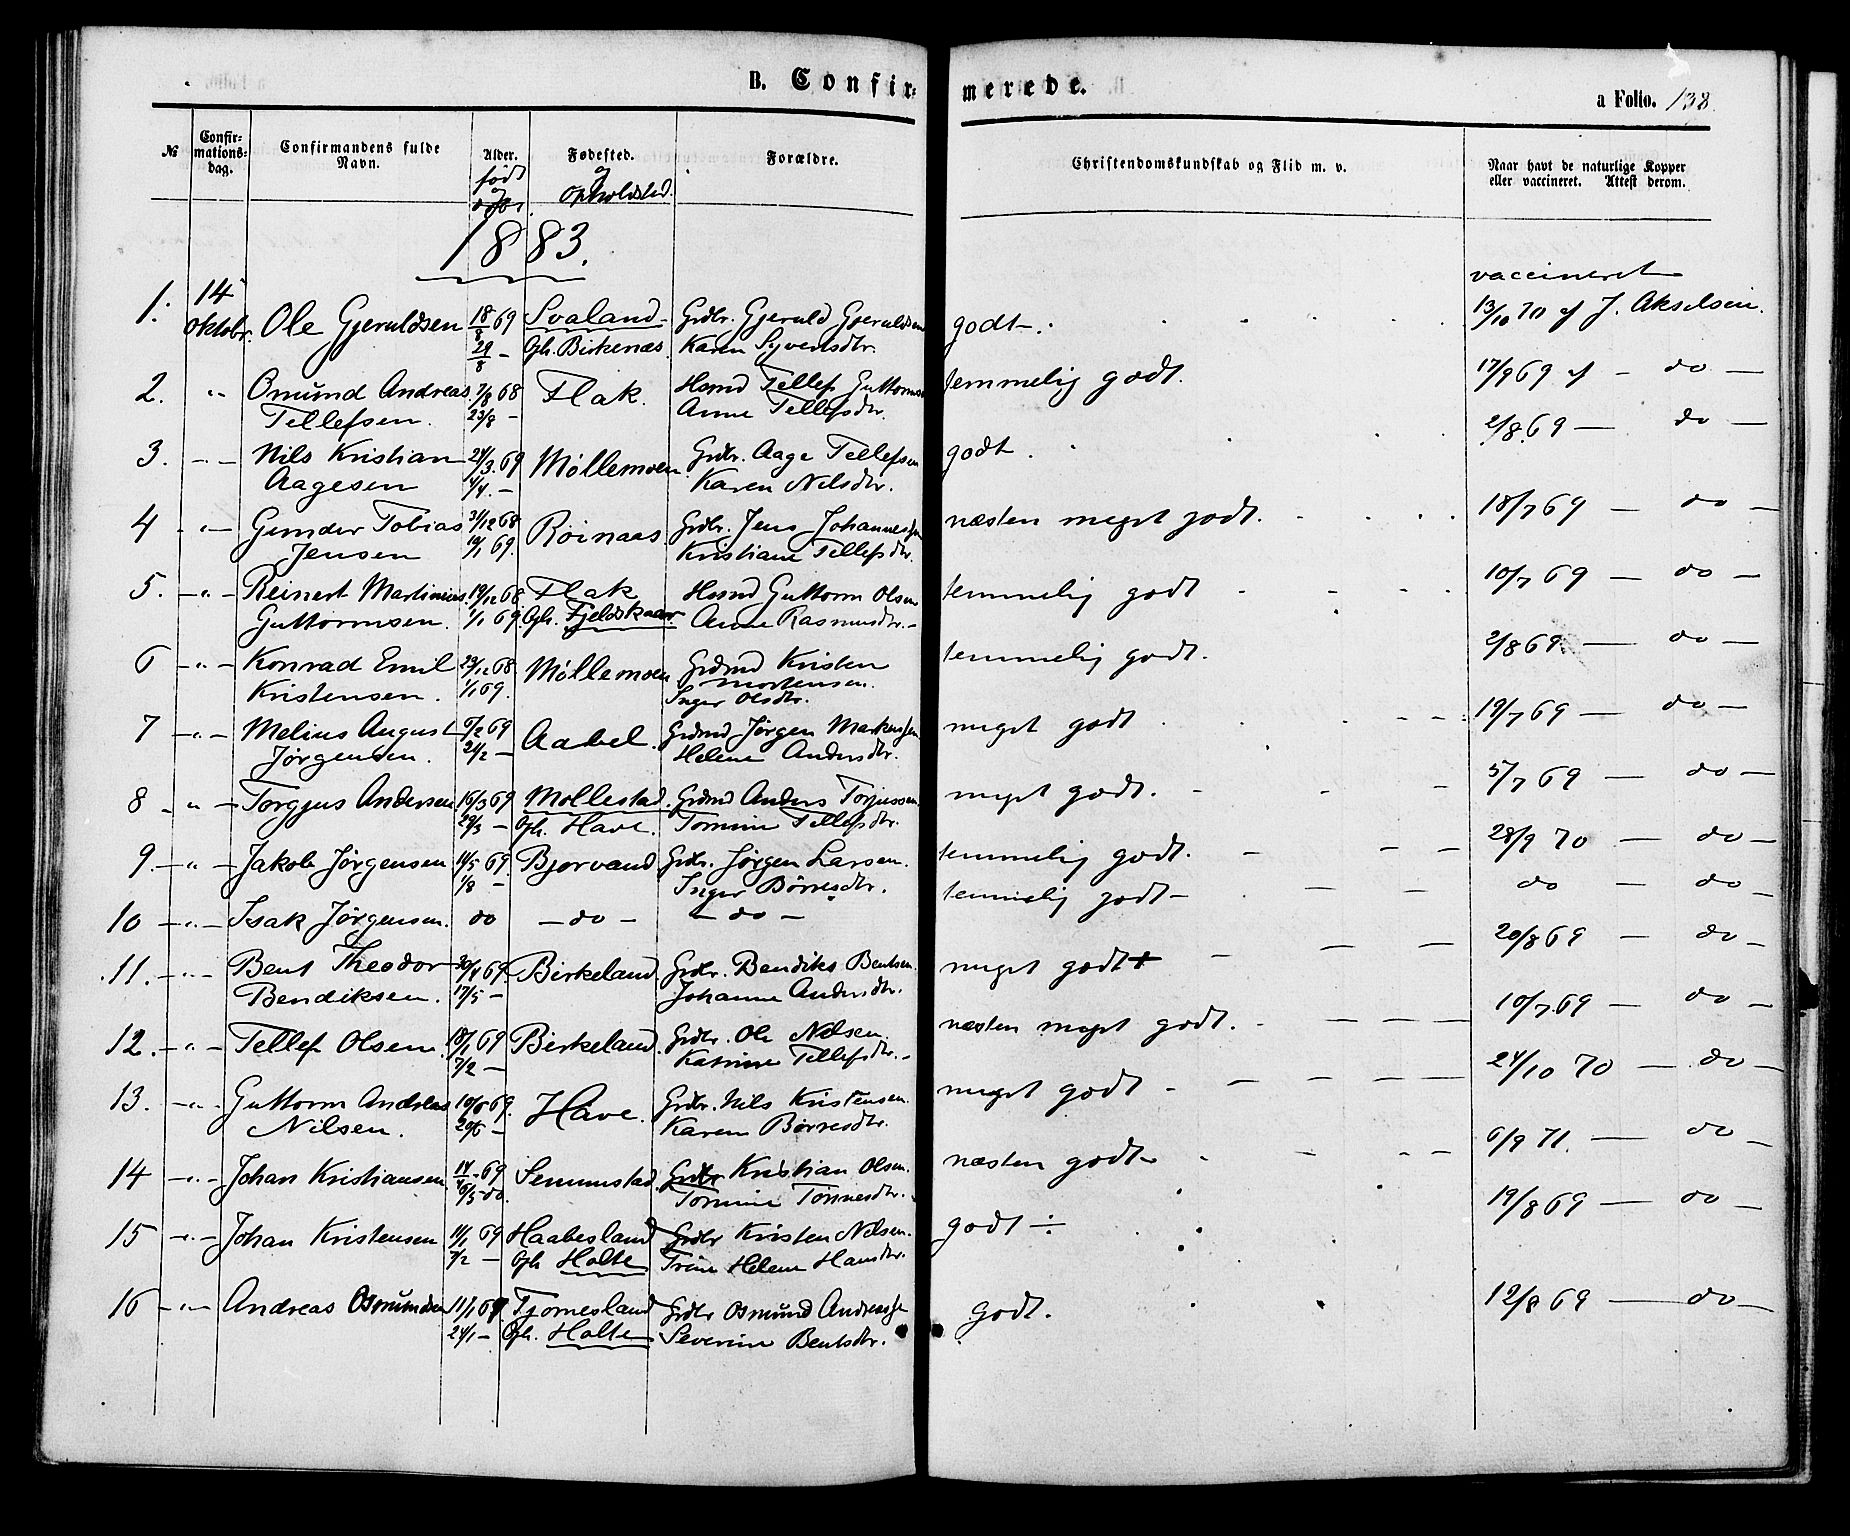 B. Confirmerede.
a Folio. 138.
№
Confirmationsdag.
Confirmandens fulde Navn.
Alder. født og
Fødested. og Opholdsted.
Forældre.
Christendomskundskab og Flid m. v.
Naar havt de naturlige Kopper eller vaccineret. Attest derom.
1883.
vaccineret
1. 14 oktobr. Ole Gjeruldsen 18/8 69 Svaland Grdbr. Gjeruld Gjeruldsen godt-. 13/10 70 af J. Akselsen.
29/8 - Oph. Birkenæs Karen Syvertsdtr.
2. " Omund Andreas 7/8 68 Flak. Hsmd Tellef Guttormsen temmelig godt. 17/9 69 af - do -
Tellefsen. 23/8 - Anne Tellefsdtr.
3. - " - Nils Kristian 24/3. 69 Møllemoen Grdbr. Aage Tellefsen godt. 2/8. 69 - do -
Aagesen 4/4. - Karen Nilsdtr.
4 - " - Gunder Tobias 31/12 68 Røinaas Grdbr. Jens Johannessen næsten meget godt. 18/7 69 - do -
Jensen 69. Kristiane Tellefsdtr.
5. - " - Reinert Martinius 19/12 68 Flak Hsmd Guttorm Olsen temmelig godt 10/7 69 - do -
Guttormsen. 1/1 69. Oph. Fjeldskaar Anne Rasmusdtr. -
6 - " - Konrad Emil 29/12 68 Møllemoen Grdmd Kristen temmelig godt. 2/8 69. - do -
Kristensen. 1/1 69. Mortensen.
Inger Olsdtr.
7 - " - Melius August 6/2 69 Aabel. Grdmd Jørgen Markussen meget godt 19/7 69 - do -
Jørgensen. 24/2 - Helene Andersdtr.
8 - " - Torgjus Andersen 16/3 69 Mollestad. Grdmd Anders Torjussen meget godt. 5/7 69 - do -
29/3 - Oph. Have. Tomine Tellefsdtr.
9. - " - Jakob Jørgensen 14/5 69. Bjorvand Grdbr. Jørgen Larsen. temmelig godt. 28/9 70 - do -
1/8 - Inger Børresdtr.
10 - " - Isak Jørgensen. do - do - - do - temmelig godt - do - do -
11. - " - Bent Theodor 30/4 69. Birkeland. Grdbr. Bendiks Bentsen. meget godt + 20/8 69 - do -
Bendiksen. 17/5 - Johanne Andersdtr.
12. - " - Tellef Olsen. 18/1 69 Birkeland. Grdbr. Ole Nilsen. næsten meget godt. 10/7. 69 - do -
7/2 - Katrine Tellefsdtr. -
13. - " - Guttorm Andreas 10/6 69. Have. Grdbr. Nils Kristensen. meget godt 24/10 70 - do -
Nilsen. 20/6 - Karen Børresdtr.
14 - " - Johan Kristiansen 69 Senumstad. Grdbr Kristian Olsen. næsten godt - 6/9 71. - do -
do. Tomine Tønnesdtr.
15 - " - Johan Kristensen 11/1 69 Haabesland Grdbr Kristen Nilsen. godt ÷ 19/8 69 - do -
7/2 - Oph Holte Trine Helene Hansdtr.
16 - " - Andreas Osmundsen 11/1 69 Tjomesland Grdbr Osmund Andreassen godt. 12/8 69 - do -
24/1 - Oph. Holte Severine Bentsdtr.